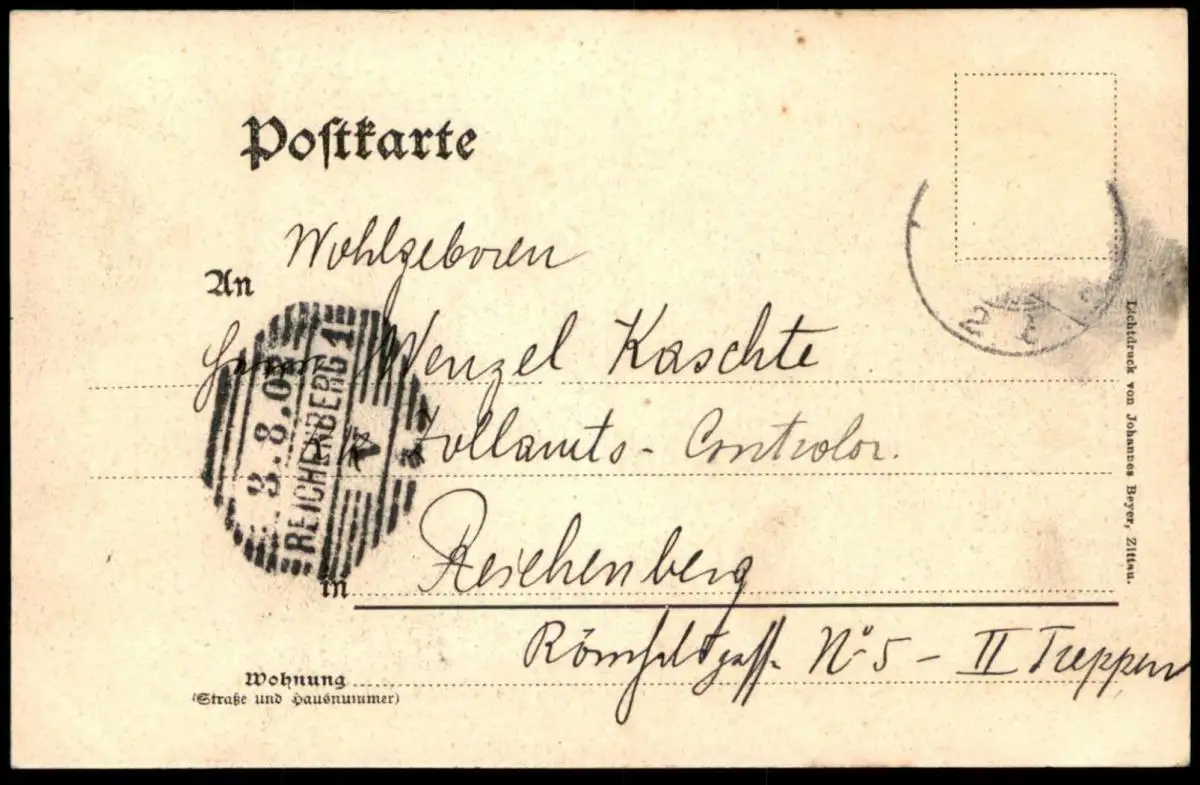 Postkarte
Wohlgeboren
An
Herrn Wenzel Kaschte
Zollamts - Controlor.
in Reichenberg
N° 5 - II Treppen
Wohnung
(Straße und Hausnummer)
REICHENBERG 1
Lichtdruck von Johannes Beyer, Zittau.